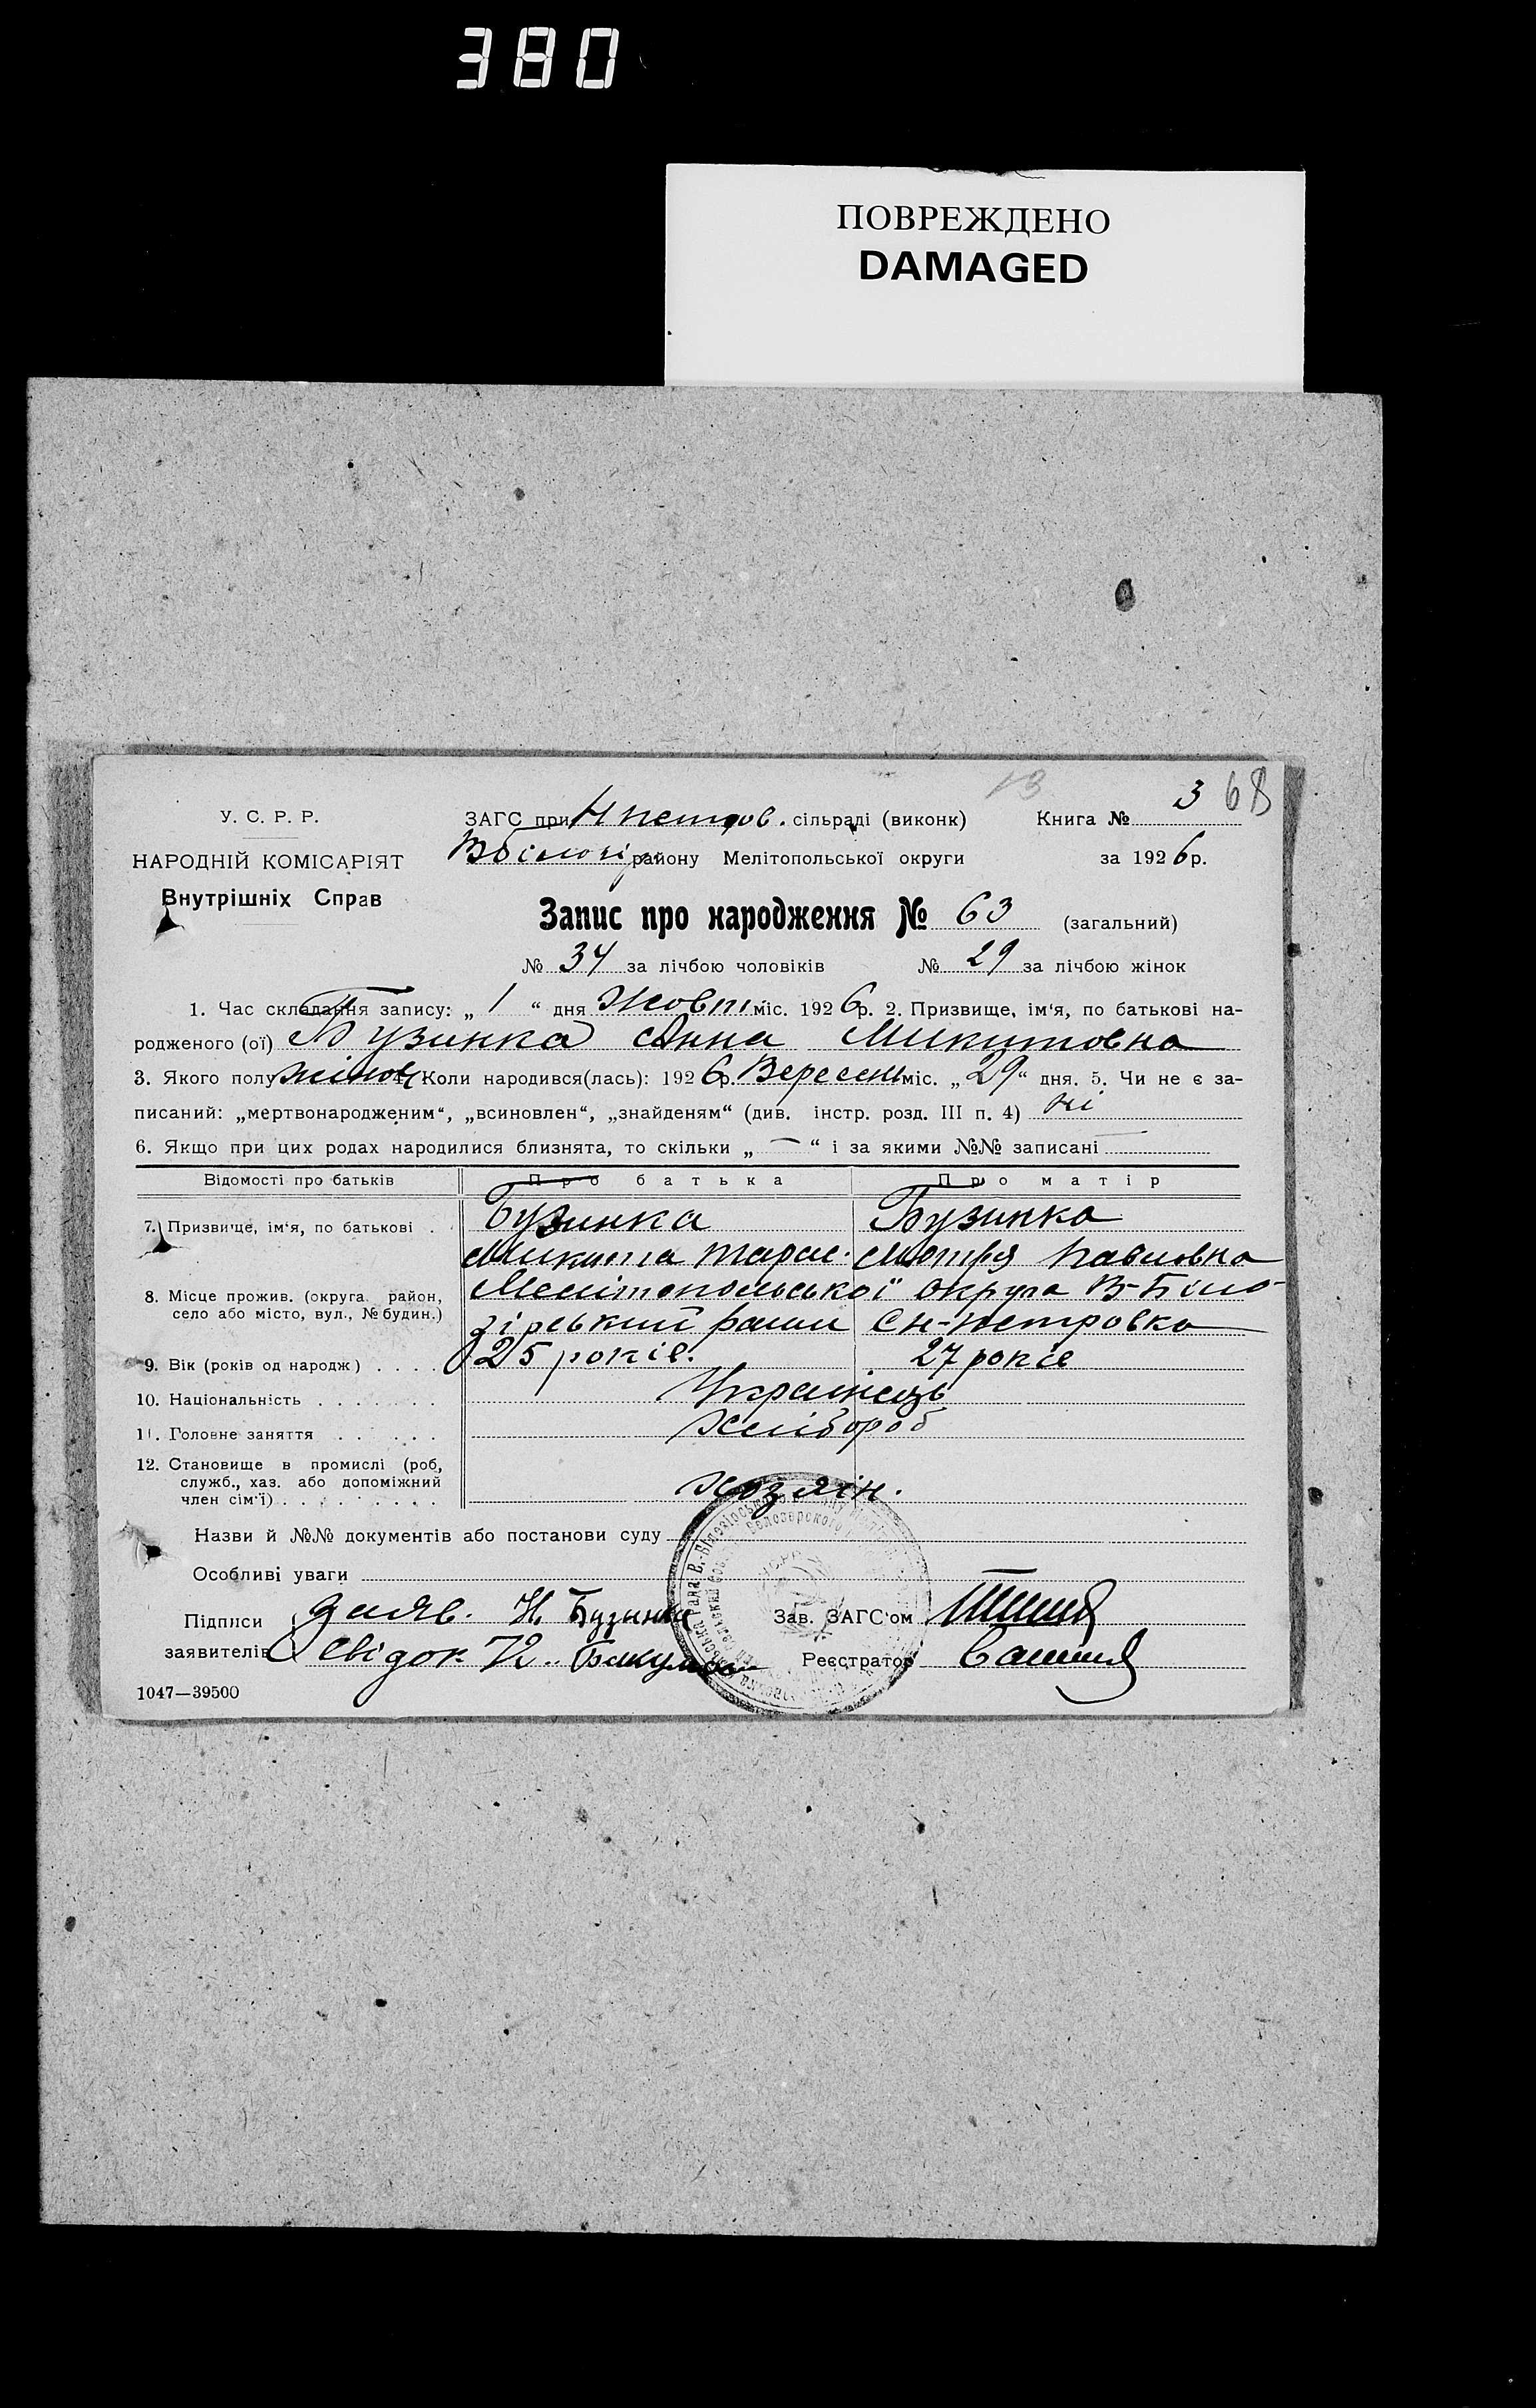 380
ПОВРЕЖДЕНО
DAMAGED
13
3 68
У. С. Р. Р. ЗАГС при Н петров. сільраді (виконк) Книга №
НАРОДНІЙ КОМІСАРІЯТ району Мелітопольської округи за 1926 р.
Внутрішніх Справ
Запис про народження № 63 (загальний)
№ 34 за лічбою чоловіків № 29 за лічбою жінок
1. Час складання запису: „ 1 “ дня Жовт міс. 1926 р. 2. Призвище, ім‘я, по батькові на-
родженого (ої) Бузинка Анна Микитовна
3. Якого полу жіноч 4. Коли народився(лась): 1926 р. Вересень міс. „ 29 “ дня. 5. Чи не є за-
писаний: „мертвонародженим“, „всиновлен“, „знайденям“ (див. інстр. розд. III п. 4) ні
6. Якщо при цих родах народилися близнята, то скільки „ — “ і за якими №№ записані —
Відомості про батьків Про батька Про матір
7. Призвище, ім‘я, по батькові . Бузинка Бузинка
Микита Тарас. Мотря Павловна
8. Місце прожив. (округа район, Мелітопольської округа В-Біло-
село або місто, вул., № будин.) зірський район Сн-петровка
9. Вік (років од народж) . . . . 25 років. 27 років
10. Національність . . . . . . . Українець
11. Головне заняття . . . . . . Хлібороб
12. Становище в промислі (роб,
служб., хаз. або допоміжний
член сім‘ї) . . . . . . . . . хозяін.
Назви й №№ документів або постанови суду
Особливі уваги
Підписи заяв. Н. Бузинка Зав. ЗАГС‘ом
заявителів свідок Реєстратор
1047—39500